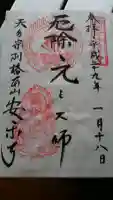 奉拝 平成二十九年 一月十八日
厄除 元三大師
天台宗別格本山 安楽寺